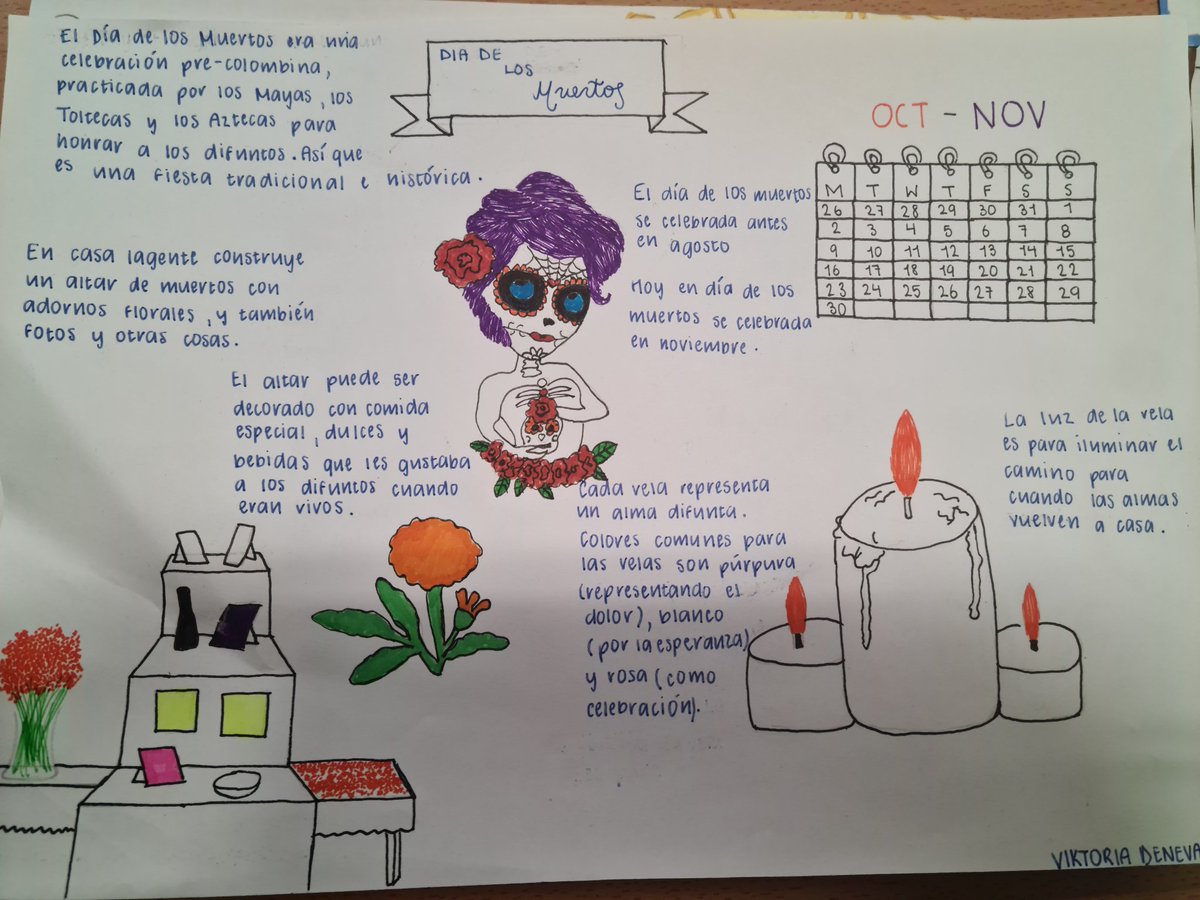 El Día de los Muertos era una
celebración pre-colombina,
practicada por los Mayas, los
Toltecas y los Aztecas para
honrar a los difuntos. Así que
es una fiesta tradicional e histórica.
DIA DE
LOS
Muertos
OCT - NOV
M T W T F S S
26 27 28 29 30 31 1
2 3 4 5 6 7 8
9 10 11 12 13 14 15
16 17 18 19 20 21 22
23 24 25 26 27 28 29
30
El día de los muertos
se celebrada antes
en agosto
Hoy en día de los
muertos se celebrada
en noviembre.
En casa lagente construye
un altar de muertos con
adornos florales, y también
fotos y otras cosas.
El altar puede ser
decorado con comida
especial, dulces y
bebidas que les gustaba
a los difuntos cuando
eran vivos.
Cada vela representa
un alma difunta.
Colores comunes para
las velas son púrpura
(representando el
dolor), blanco
(por la esperanza)
y rosa (como
celebración).
La luz de la vela
es para iluminar el
camino para
cuando las almas
vuelven a casa.
VIKTORIA DENEVA